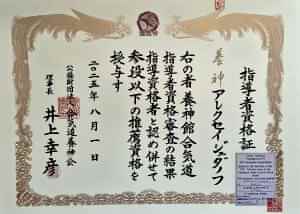 指導者資格証
養神 アレクセイ・ジダノフ
右の者養神館合気道
指導者資格審査の結果
指導資格者と認め併せて
参段以下の推薦資格を
授与す
二〇二五年八月一日
公益財団法人合気道養神会
理事長 井上幸彦